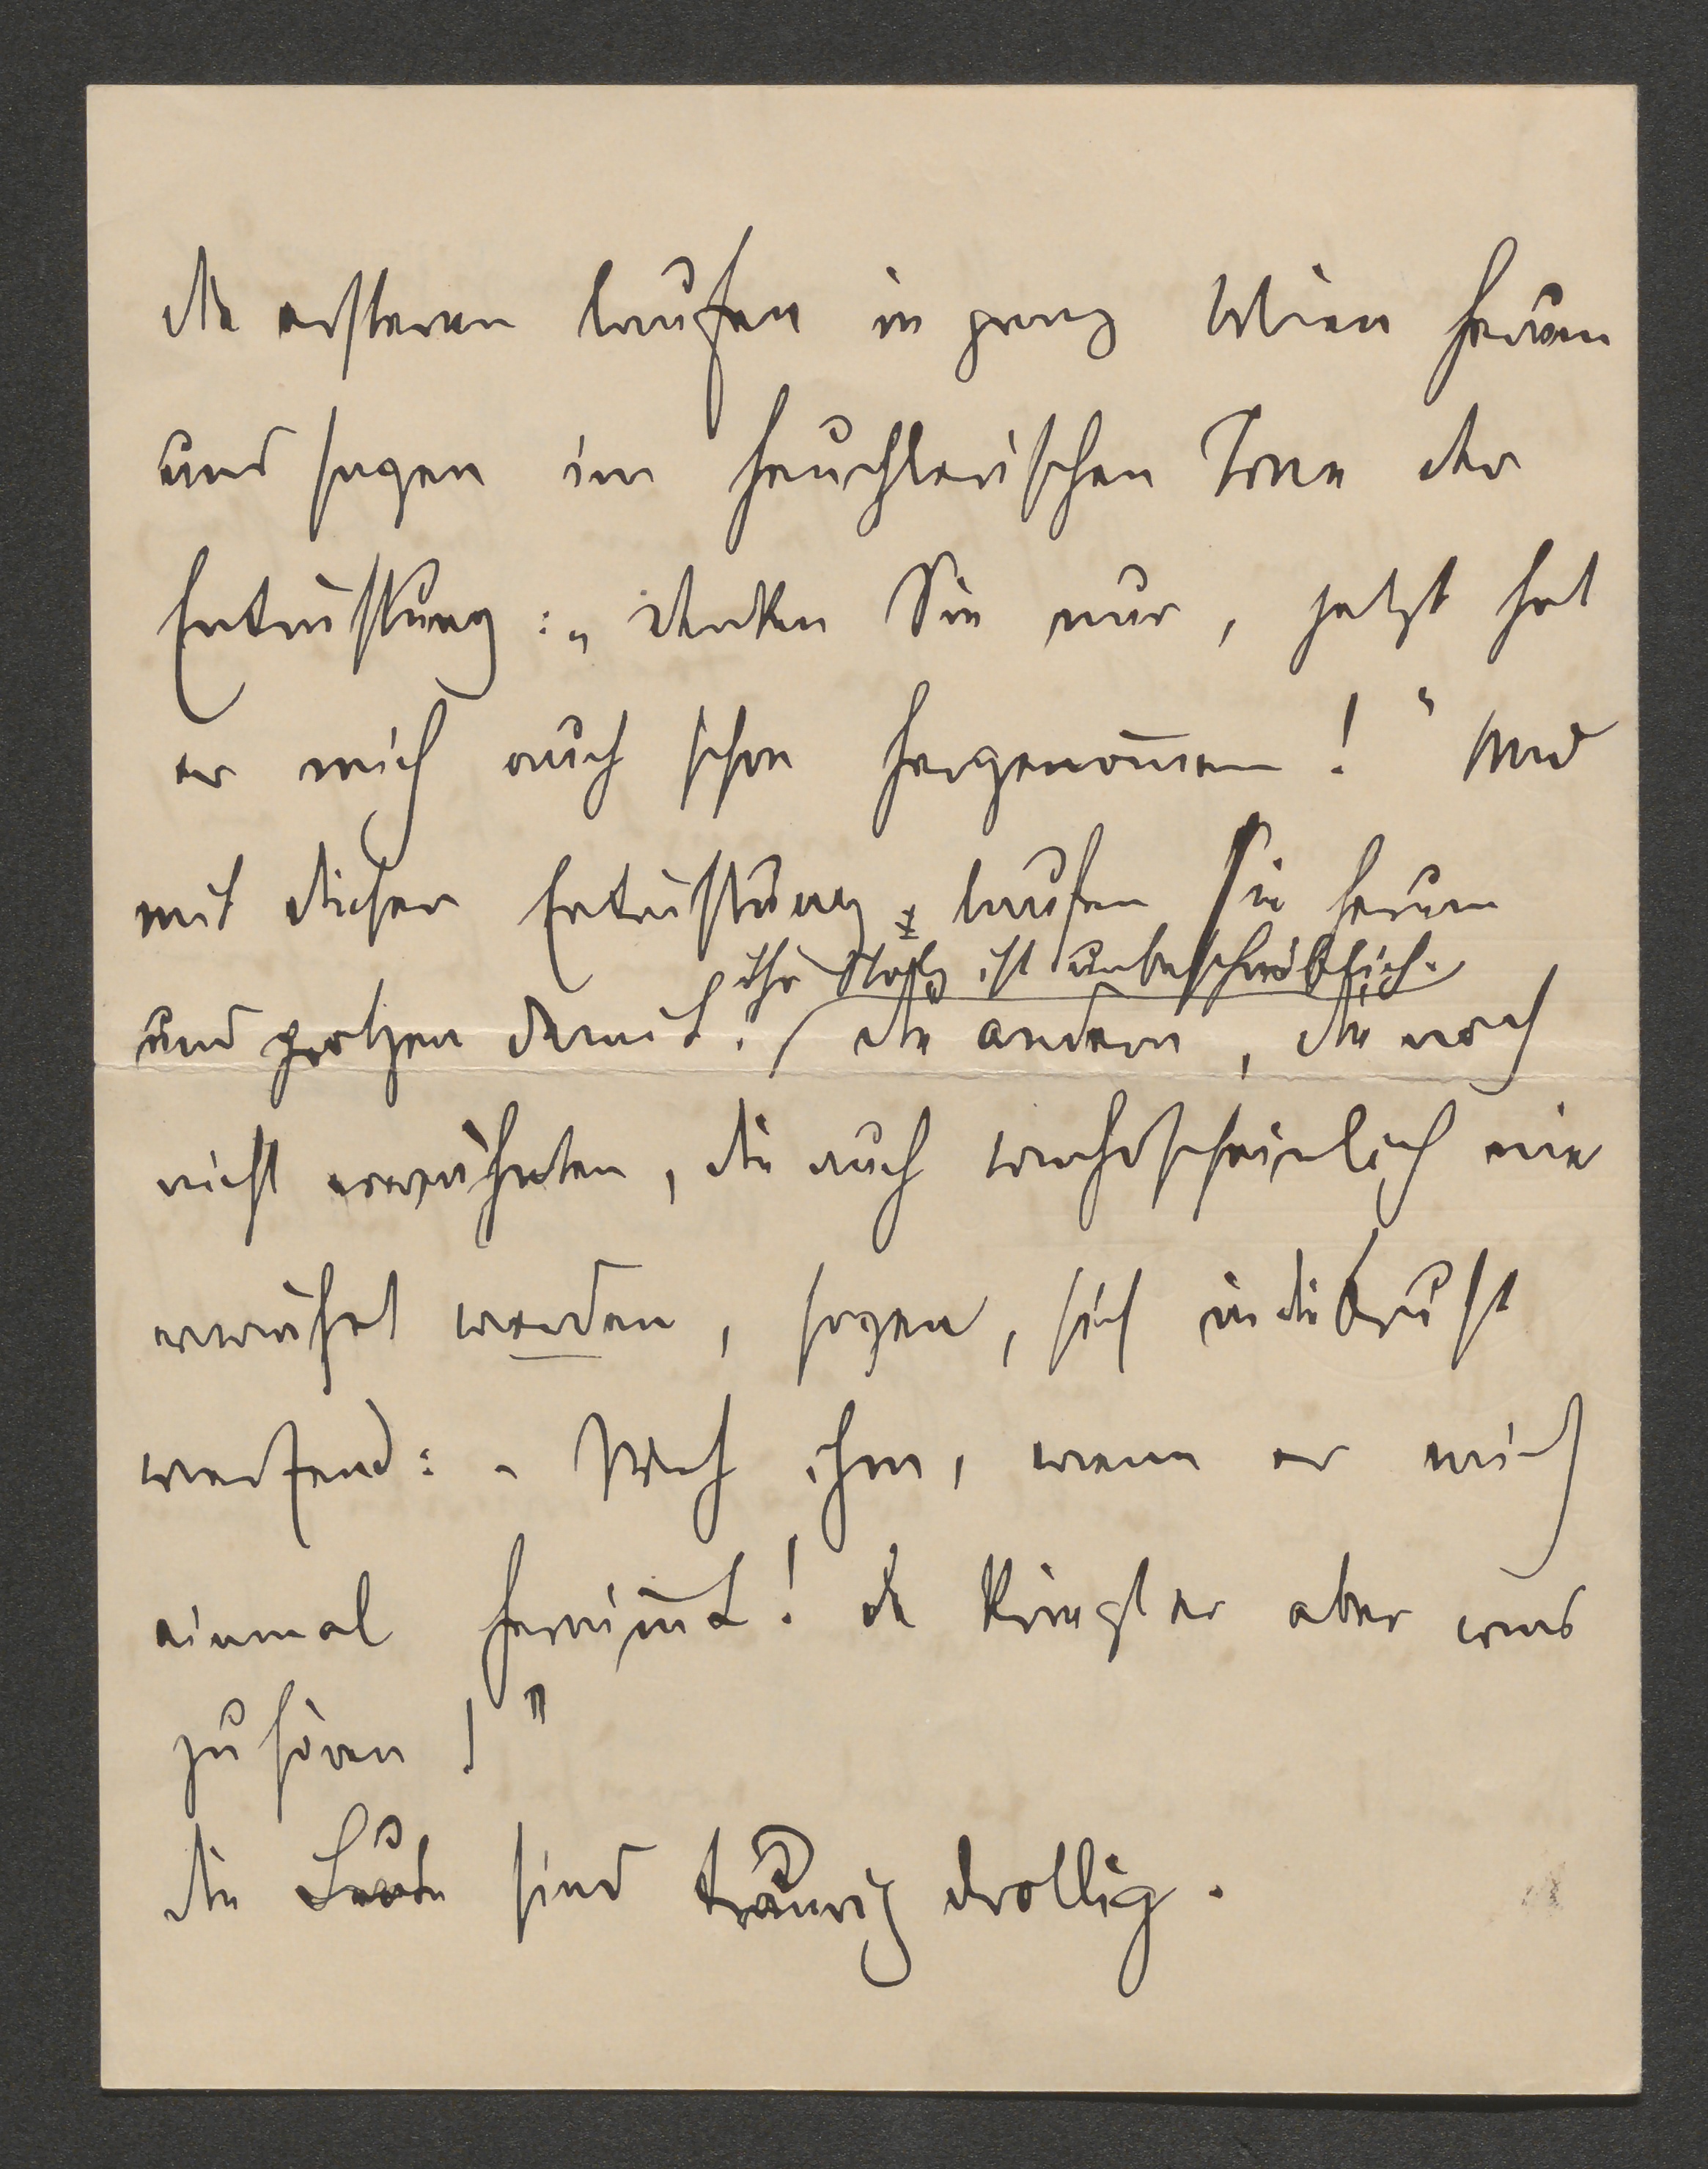 die ersteren laufen in ganz Wien herum
und sagen im heuchlerischen Tone der
Entrüstung: „Denken Sie nur, jetzt hat
er mich auch schon hergenom̄en!“ Und
mit dieser Entrüstung laufen sie herum
ihr Stolz ist unbeschreiblich.
und protzen damit. die andern, die noch
nicht erwähnten, die auch wahrscheinlich nie
erwähnt werden, sagen, sich in die Brust
werfend: „Weh ihm, wenn er mich
einmal hernim̄t! da kriegt er aber was
zu hören!“
die Leute sind traurig drollig.